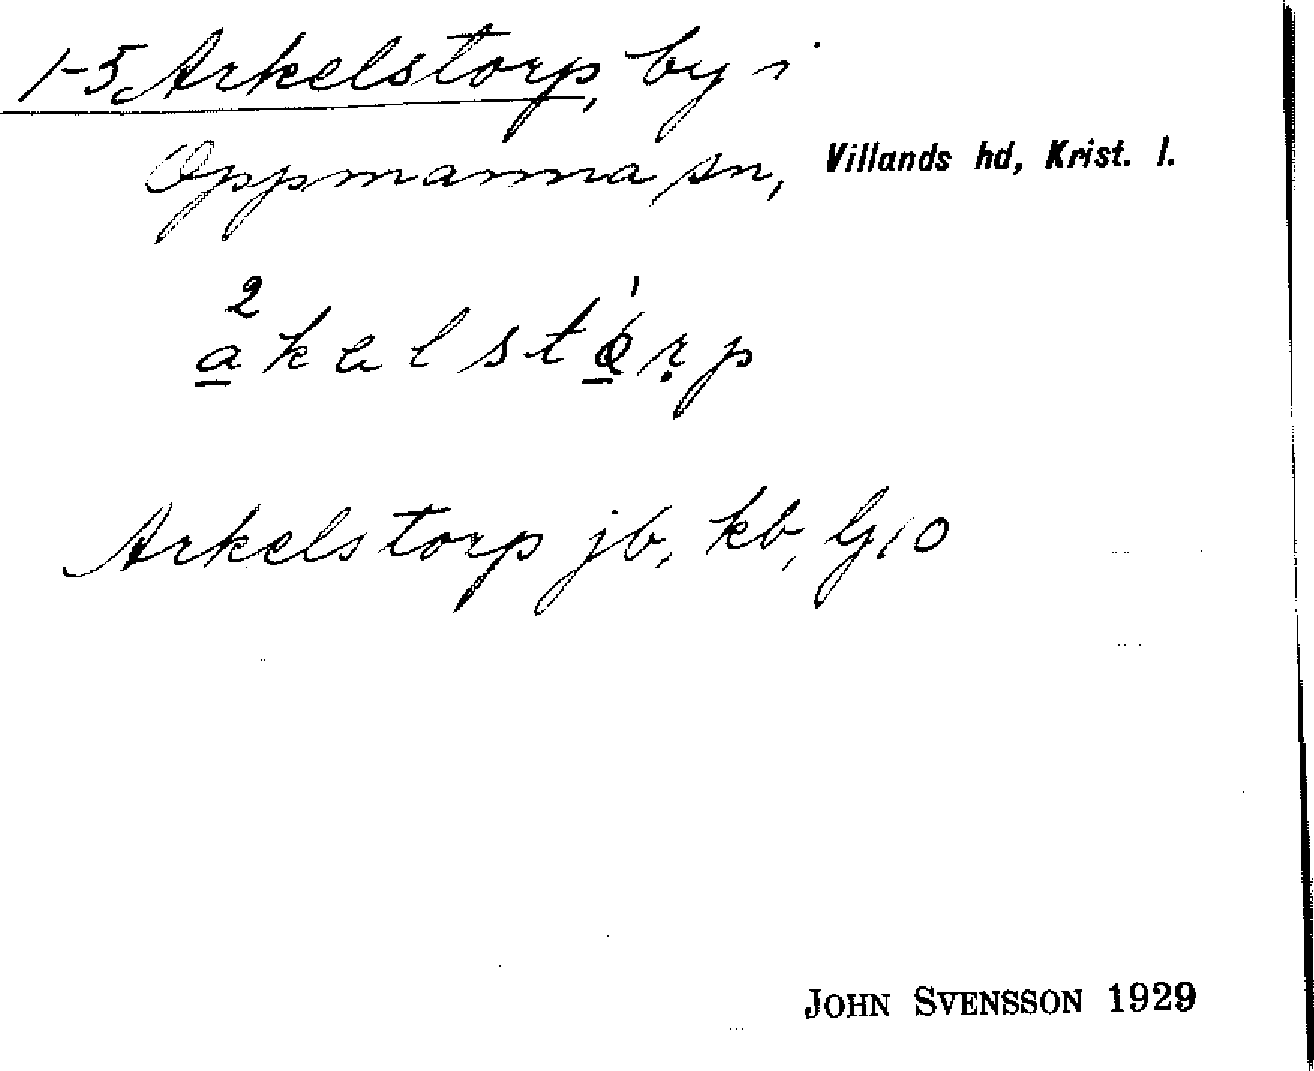 1-5 Arkelstorp, by i
Oppmanna sn, Villands hd, Krist. l.
Arkelstorp jb, kb,
JOHN SVENSSON 1929